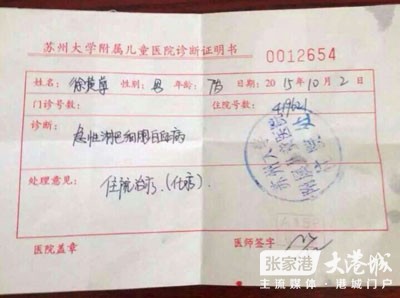 苏州大学附属儿童医院诊断证明书
0012654
姓名: 徐 性别: 男 年龄: 日期: 2015年10月2日
门诊号数: 住院号:
诊断:
急性淋巴细胞白血病
处理意见:
住院治疗.(化疗)
医院盖章 医师签字
张家港 大港城
主流媒体·港城门户